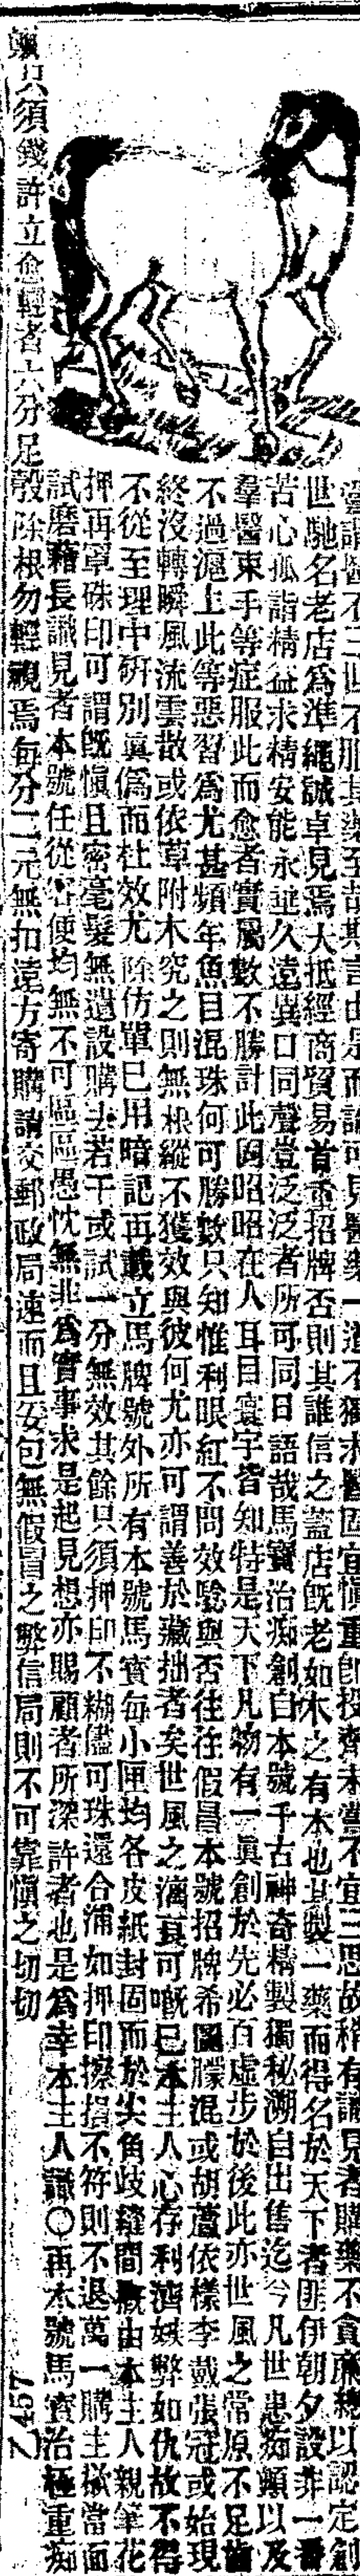 嘗謂醫不三世不服其藥至哉斯言由是而論可見醫藥一道不獨求醫固宜慎重即投劑未嘗不宜三思故稍有識見者購藥不貪廉總以認定創
世馳名老店爲準繩誠卓見焉大抵經商貿易首重招牌否則其誰信之蓋店旣老如木之有本也其製一藥而得名於天下者匪伊朝夕設非一番
苦心孤詣精益求精安能永垂久遠異口同聲豈泛泛者所可同日語哉馬寶治痴創自本號千古神奇精製獨秘溯自出售迄今凡世患痴顛以及
羣醫束手等症服此而愈者實屬數不勝計此固昭昭在人耳目寰宇皆知特是天下凡物有一眞創於先必百虛步於後此亦世風之常原不足齒
不過滬上此等惡習爲尤甚頻年魚目混珠何可勝數只知惟利眼紅不問效驗與否往往假冒本號招牌希圖朦混或胡蘆依樣李戴張冠或始現
終沒轉瞬風流雲散或依草附木究之則無根縱不獲效與彼何尤亦可謂善於藏拙者矣世風之漓衰可嘅已本主人心存利濟嫉弊如仇故不得
不從至理中硏別眞僞而杜效尤除仿單已用暗記再載立馬牌號外所有本號馬寶每小匣均各皮紙封固而於尖角歧縫間概由本主人親筆花
押再罩硃印可謂旣愼且密毫髮無遺設購去若干或試一分無效其餘只須押印不糊儘可珠還合浦如押印擦損不符則不退萬一購主欲當面
試磨藉長識見者本號任從客便均無不可區區愚忱無非爲實事求是起見想亦賜顧者所深許者也是爲幸本主人識〇再本號馬寶治極重痴
顛只須錢許立愈輕者六分足彀除根勿輕視焉每分二元無扣遠方寄購請交郵政局速而且妥包無假冒之弊信局則不可靠愼之切切
Z457